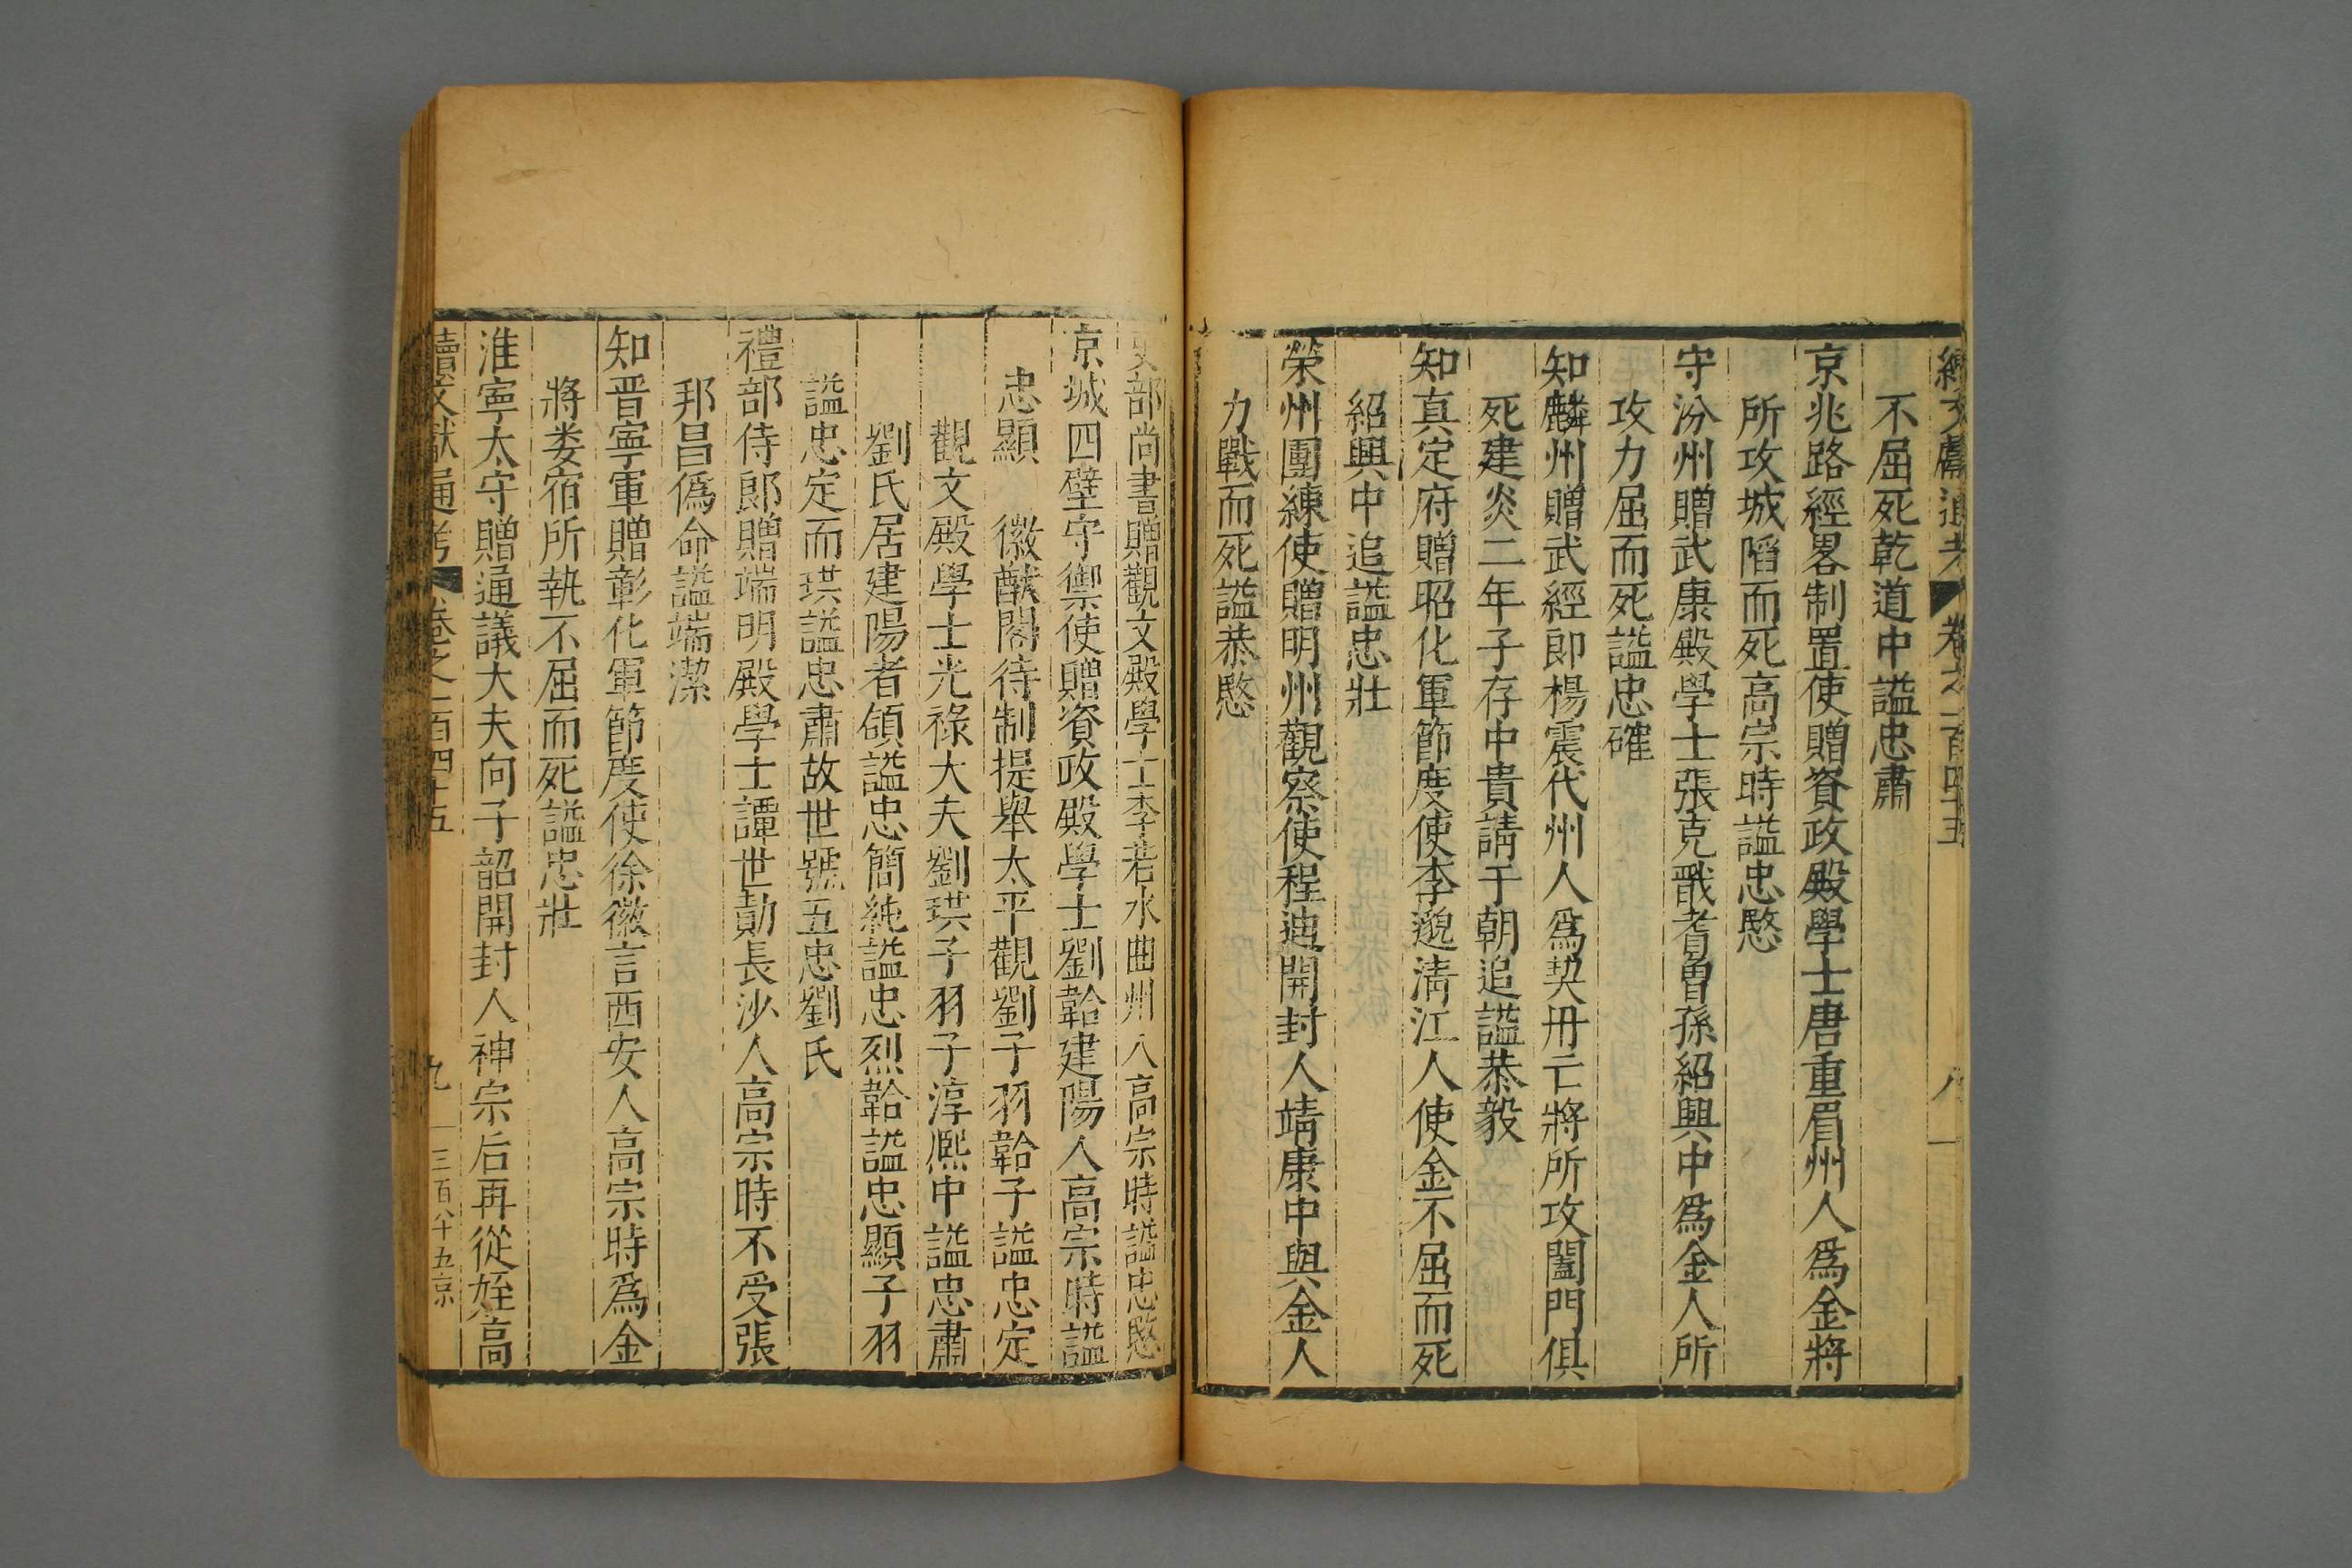 續文獻通考 卷之一百四十五 八
不屈死乾道中謚忠肅
京兆路經畧制置使贈資政殿學士唐重眉州人爲金將
所攻城陷而死高宗時謚忠愍
守汾州贈武康殿學士張克戩耆曾孫紹興中爲金人所
攻力屈而死謚忠確
知麟州贈武經郎楊震代州人爲契丹亡將所攻闔門俱
死建炎二年子存中貴請于朝追謚恭毅
知真定府贈昭化軍節度使李邈淸江人使金不屈而死
紹興中追謚忠壯
榮州團練使贈明州觀察使程迪開封人靖康中與金人
力戰而死謚恭愍
吏部尚書贈觀文殿學士李若水曲州人高宗時謚忠愍
京城四壁守禦使贈資政殿學士劉韐建陽人高宗時謚
忠顯 徽猷閣待制提舉太平觀劉子羽韐子謚忠定
觀文殿學士光祿大夫劉珙子羽子淳熈中謚忠肅
劉氏居建陽者領謚忠簡純謚忠烈韐謚忠顯子羽
謚忠定而珙謚忠肅故世號五忠劉氏
禮部侍郎贈端明殿學士譚世勣長沙人高宗時不受張
邦昌僞命謚端潔
知晋寧軍贈彰化軍節度使徐徽言西安人高宗時爲金
將娄宿所執不屈而死謚忠壯
淮寧太守贈通議大夫向子韶開封人神宗后再從姪高
續文獻通考 卷之一百四十五 九 三百八十五京